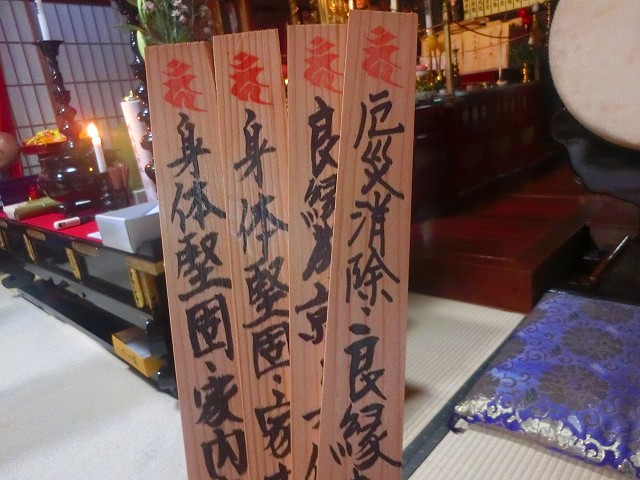 身体堅固・家内
身体堅固・家
良縁成
厄災消除・良縁